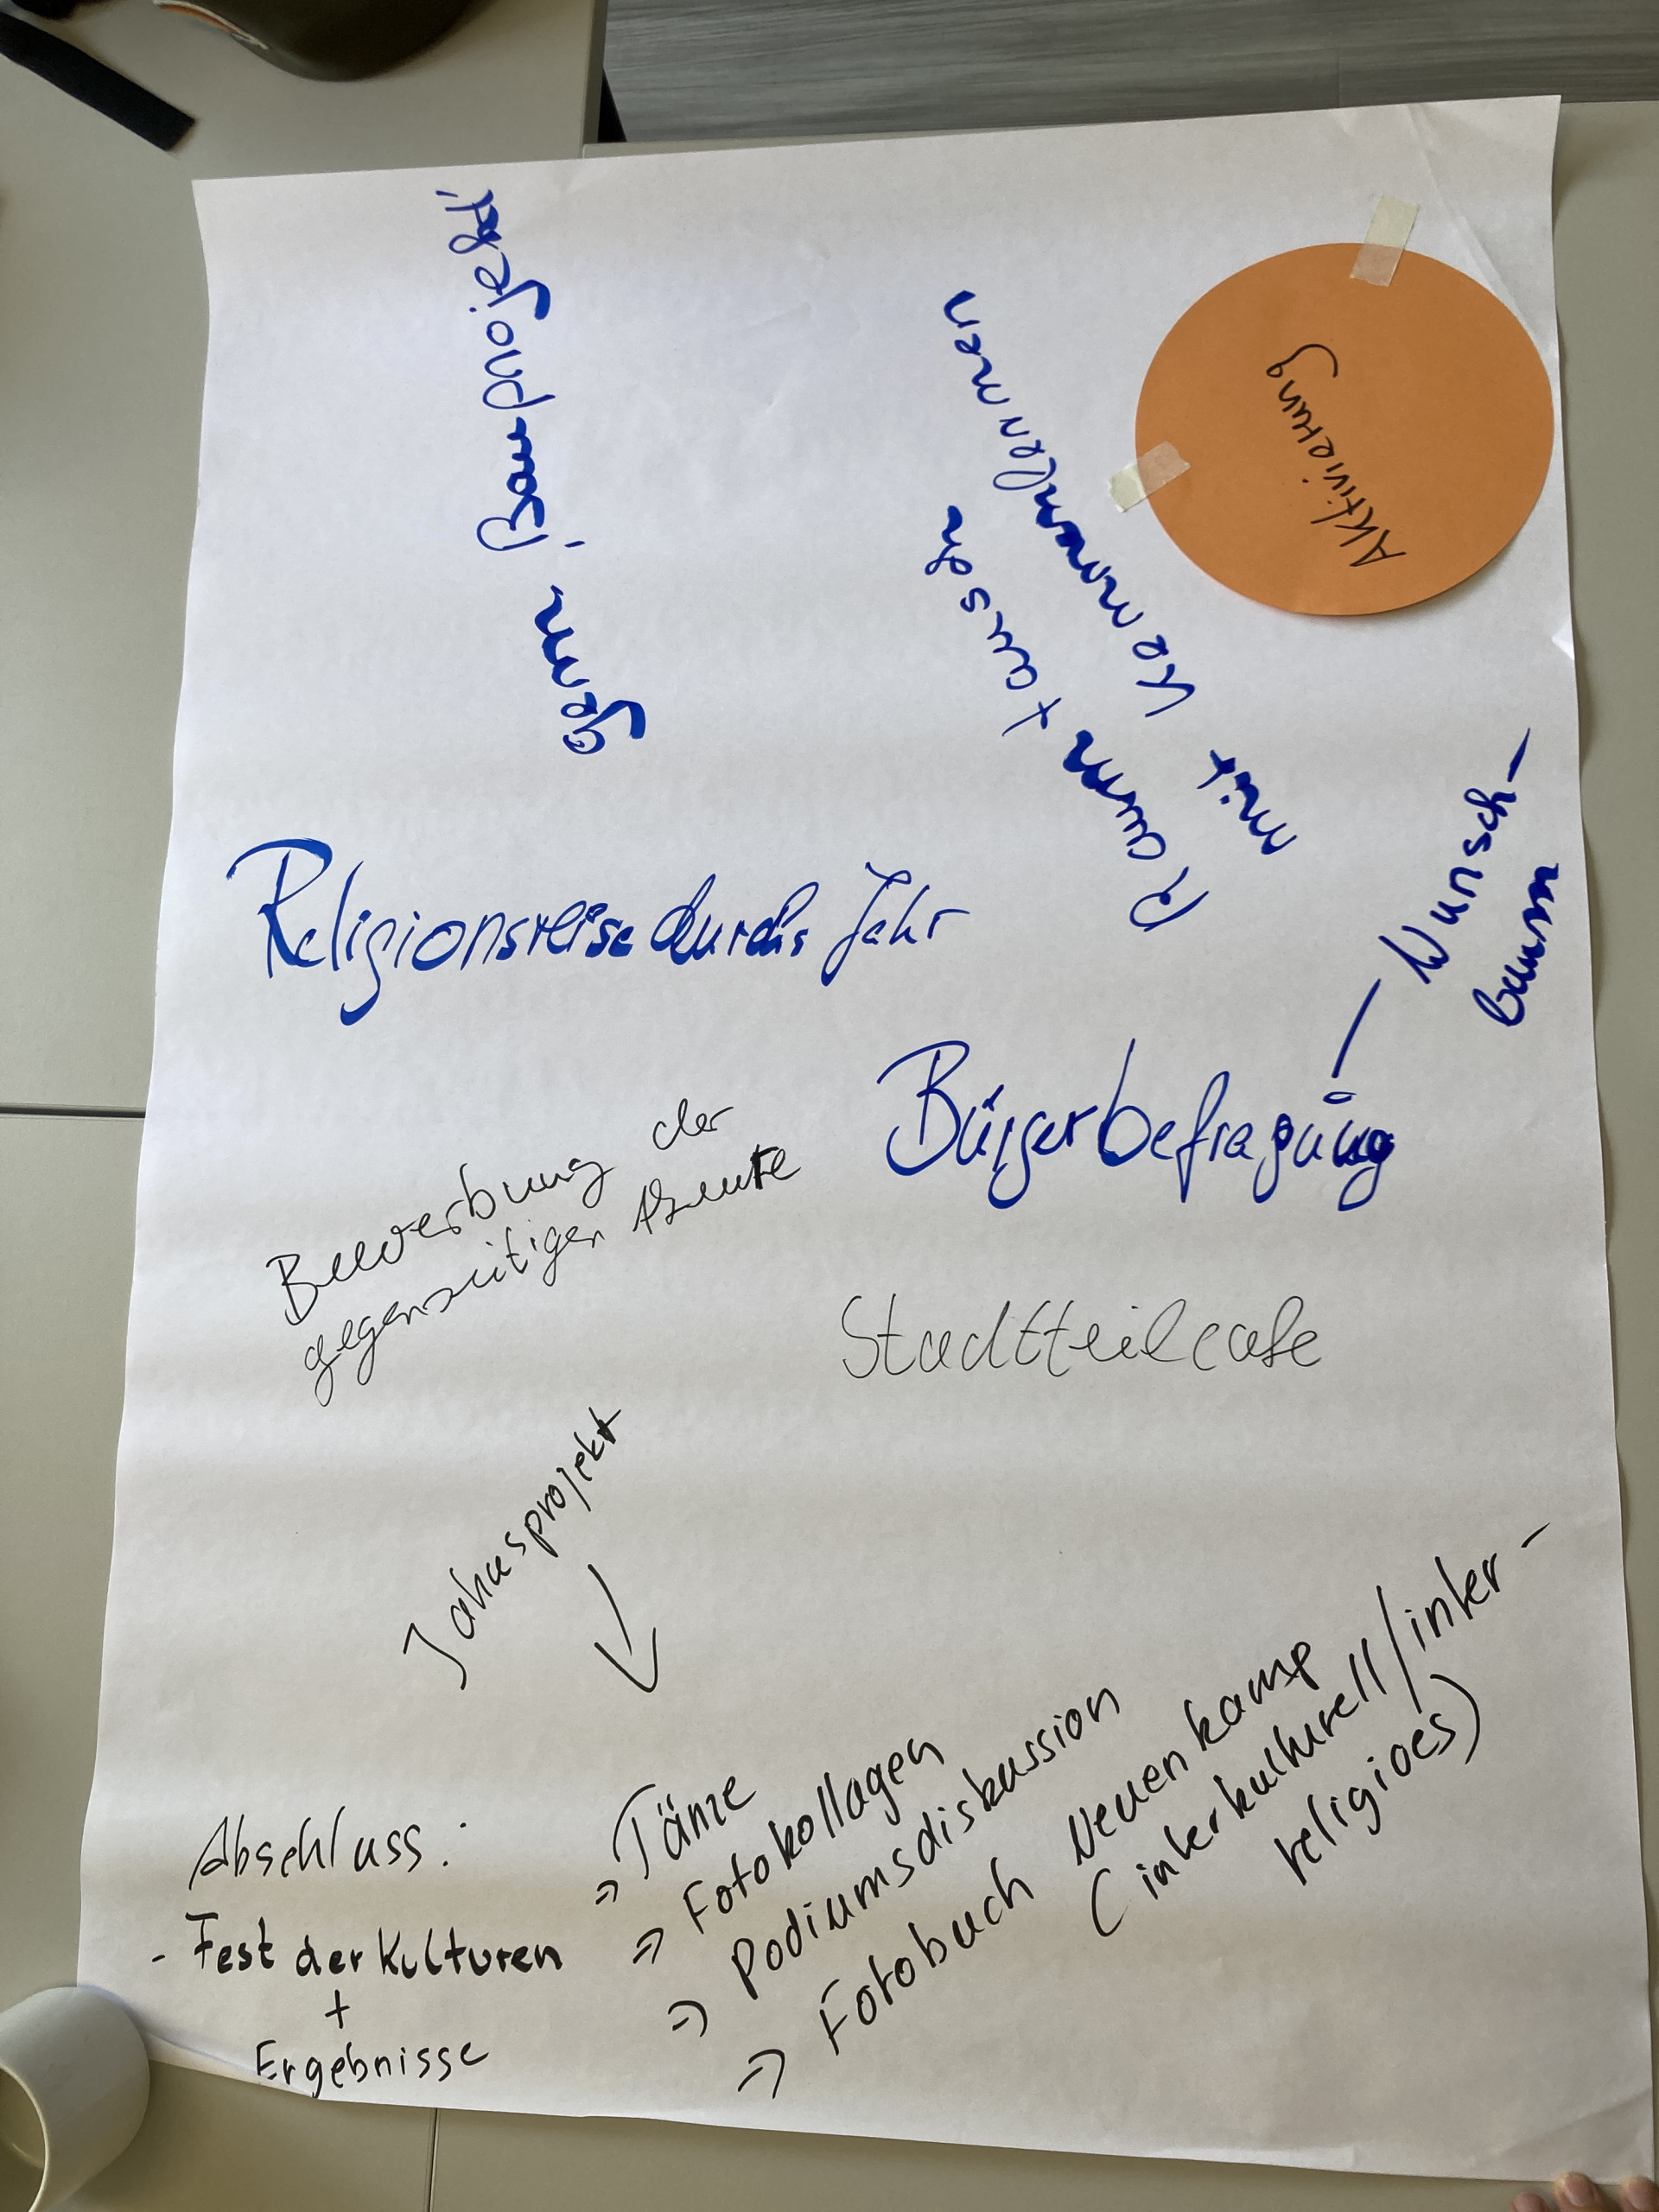 Aktivierung
Raum tausch
mit kennenlernen
Religionsreise durchs Jahr
Wunsch-
baum
Bürgerbefragung
Bewerbung der
gegenseitigen
Stadtteilcafe
Jahresprojekt
Abschluss:
- Fest der Kulturen
+
Ergebnisse
=> Tänze
=> Fotokollagen
=> Podiumsdiskussion
=> Fotobuch Neuenkamp
(interkulturell/inter-
religioes)